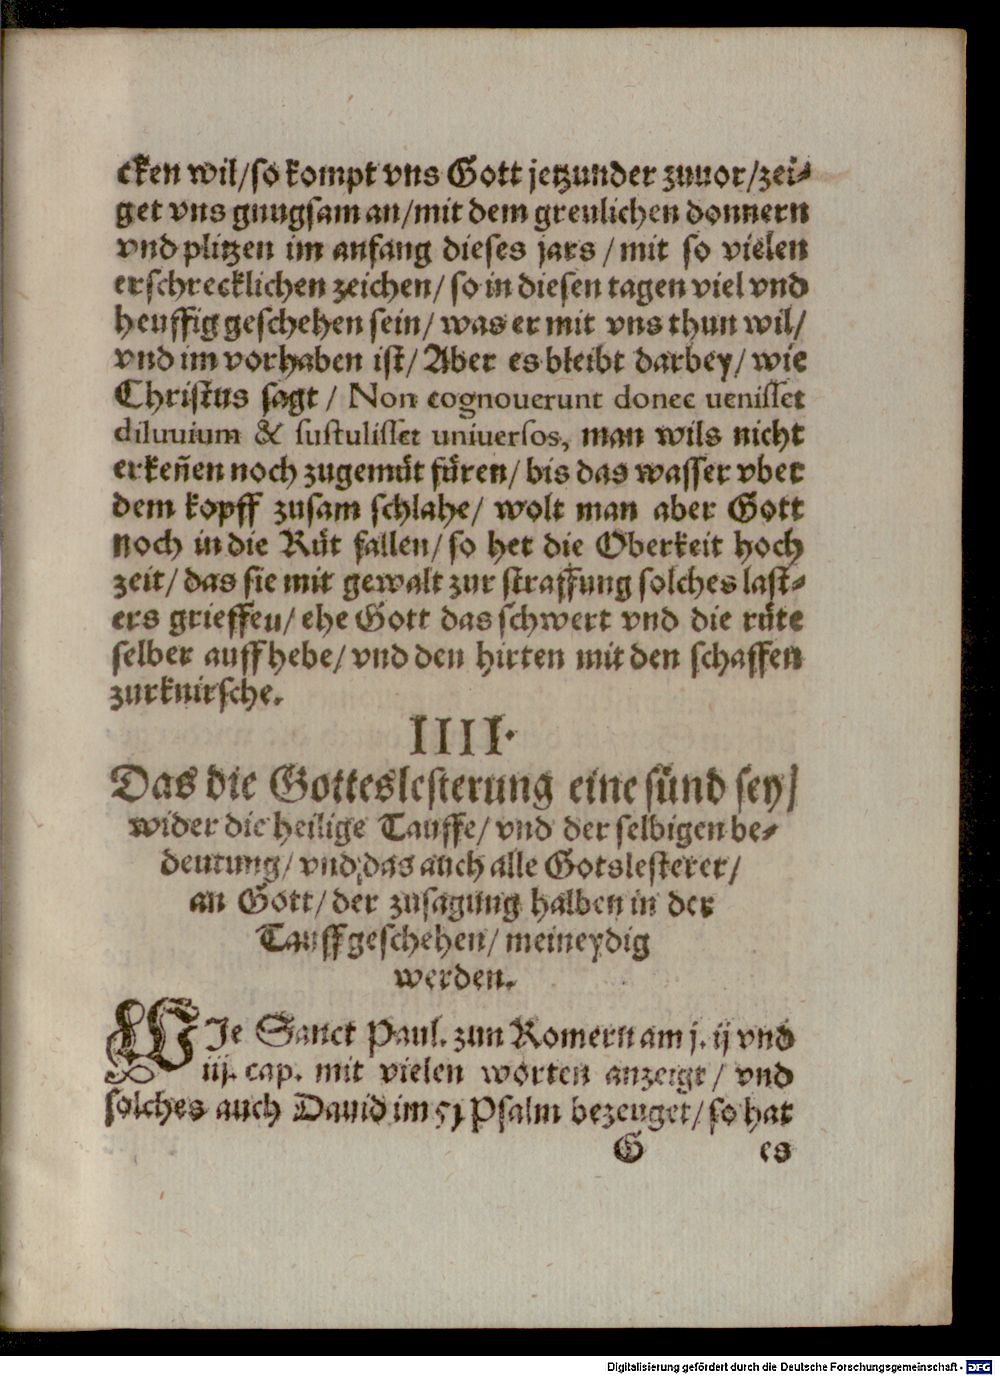 cken wil/so kompt vns Gott jetzunder zuuor/zei⸗
get vns gnugsam an/mit dem greulichen donnern
vnd plitzen im anfang dieses jars / mit so vielen
erschrecklichen zeichen/ so in diesen tagen viel vnd
heuffig geschehen sein/ was er mit vns thun wil/
vnd im vorhaben ist/ Aber es bleibt darbey/ wie
Christus sagt / Non cognouerunt donec uenisset
diluuium & sustulisset uniuersos, man wils nicht
erkeñen noch zugemüt füren/ bis das wasser vber
dem kopff zusam schlahe/ wolt man aber Gott
noch in die Rüt fallen/ so het die Oberkeit hoch
zeit/ das sie mit gewalt zur straffung solches last⸗
ers grieffen/ ehe Gott das schwert vnd die rüte
selber auffhebe/ vnd den hirten mit den schaffen
zurknirsche.
IIII.
Das die Gotteslesterung eine sünd sey/
wider die heilige Tauffe/ vnd der selbigen be⸗
deutung/ vnd das auch alle Gotslesterer/
an Gott/ der zusagung halben in der
Tauff geschehen/ meineydig
werden.
WJe Sanct Paul. zun Romern am j. ij vnd
iij. cap. mit vielen worten anzeigt/ vnd
solches auch Dauid im 51 Psalm bezeuget/ so hat
G es
Digitalisierung gefördert durch die Deutsche Forschungsgemeinschaft - DFG